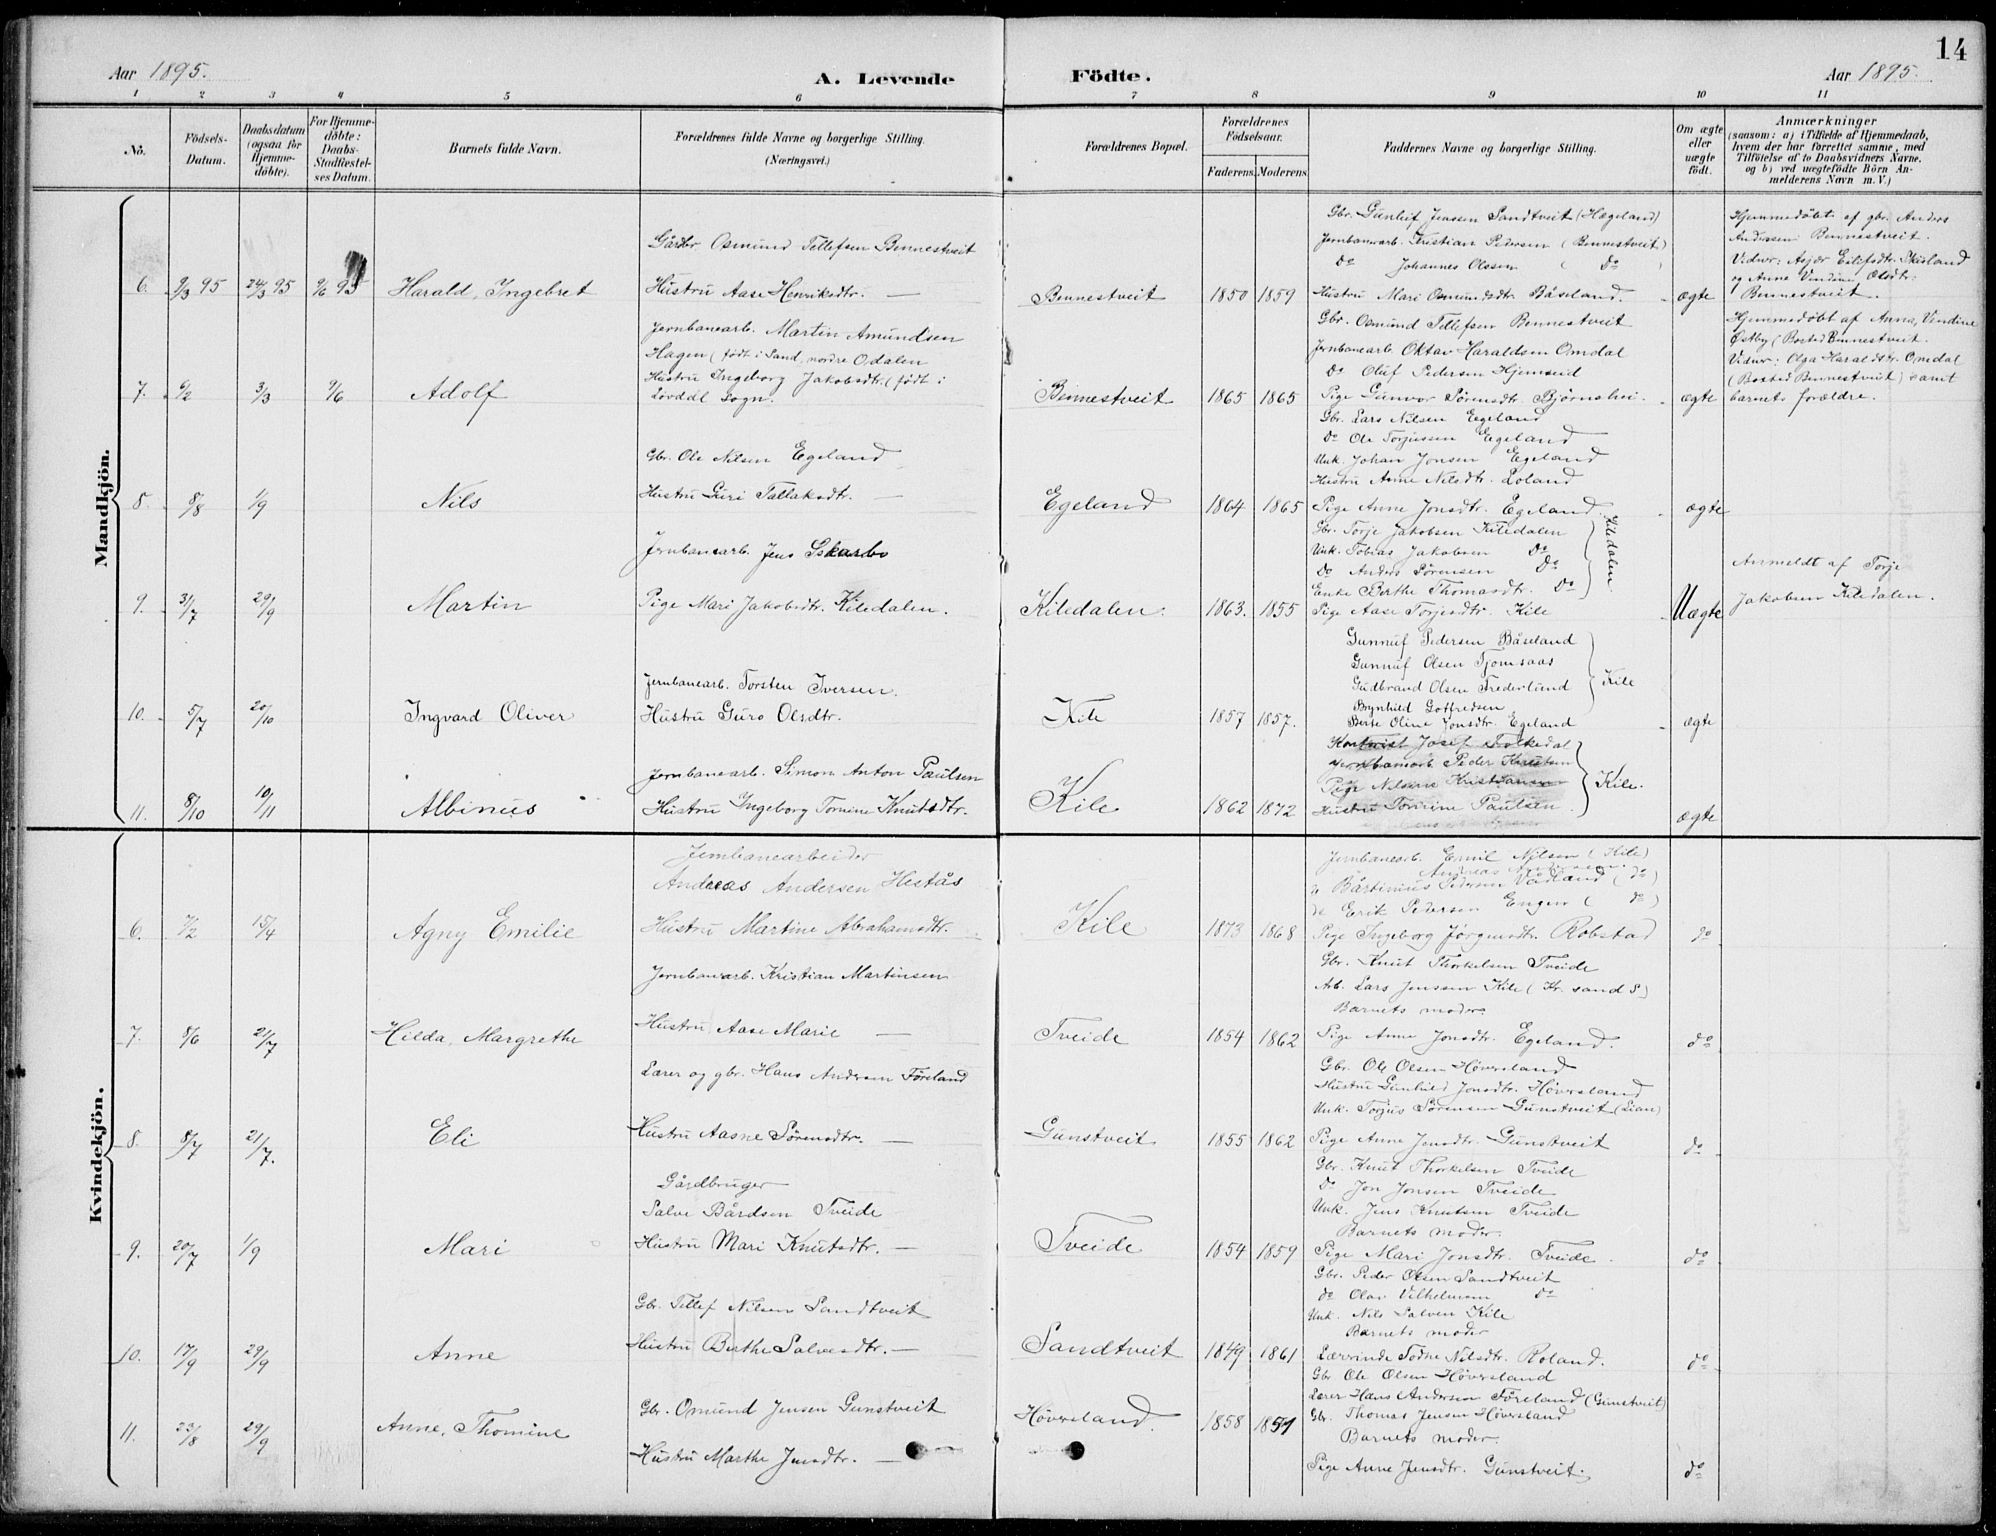 14
Aar 1895.
A. Levende Födte.
Aar 1895.
1 2 3 4 5 6 7 8 9 10 11
No.
Födsels-Datum.
Daabsdatum (ogsaa for Hjemmedöbte).
For Hjemmedöbte: Daabs-Stadfæstelses Datum.
Barnets fulde Navn.
Forældrenes fulde Navne og borgerlige Stilling. (Næringsvei.)
Forældrenes Bopæl.
Forældrenes Födselsaar.
Faderens. Moderens.
Faddernes Navne og borgerlige Stilling.
Om ægte eller uægte födt.
Anmærkninger
(saasom: a) i Tilfælde af Hjemmedaab, hvem der har forrettet samme, med Tilföielse af to Daabsvidners Navne. og b) ved uægtefödte Börn Anmelderens Navn m. V.)
Mandkjön.
6. 9/3 95 24/3 95 9/6 95 Harald, Ingebret
Gårdbr Osmund Tellefsen Bennestveit
Hustru Aase Henriksdtr. —
Bennestveit 1850 1859
Gbr. Gunleif Jenssen Sandtveit (Hægeland)
Jernbanearb. Kristian Pedersen (Bennestveit)
Do Johannes Olssen ( Do )
Hustru Mari Osmundsdtr. Båseland.
ægte
Hjemmedöbt af gbr. Anders
Anderssen Bennestveit.
Vidner: Asjer Eilefsdtr. Skisland
og Anne Vendine Olsdtr.
Bennestveit.
7. 9/2 3/3 9/6 Adolf
Jernbanearb. Martin Amundsen
Hagen (født i Sand, nordre Odalen
Hustru Ingeborg Jakobsdtr. (født i
Sogn.
Bennestveit 1865 1865
Gbr. Osmund Tellefsen Bennestveit
Jernbanearb Oktav Haraldsen Omdal
Do Oluf Pedersen Hjemseid
Pige Gunvor Sørensdtr. Bjørnshei.
ægte
Hjemmedöbt af Anna, Vendine
Østby (Bosted Bennestveit.
Vidner: Olga Haraldsdtr. Omdal
(Bosted Bennestveit) samt
barnets forældre.
8. 8/8 1/9 Nils
Gbr. Ole Nilsen Egeland
Hustru Guri Tallaksdtr. —
Egeland 1864 1865
Gbr. Lars Nilsen Egeland
Do Ole Torjussen Egeland
Unk. Johan Jonsen Egeland
Hustru Anne Nilsdtr. Loland
Pige Anne Jonsdtr. Egeland.
ægte
9. 31/7 29/9 Martin
Jernbanearb. Jens
Pige Mari Jakobsdtr. Kiledalen.
Kiledalen. 1863. 1855
Gbr. Torje Jakobsen Kiledalen
Unk. Tobias Jakobsen Do
Do Anders Sörensen Do
Enke Berthe Thomasdtr. Do
Kiledalen.
Pige Aase Torjesdtr. Kile
Uægte
Anmeldt af Torje
Jakobsen Kiledalen.
10. 5/7 20/10 Ingvard Oliver
Jernbanearb. Torsten Iversen.
Hustru Guro Olsdtr.
Kile 1857 1857.
Gunnuf Pedersen Båseland
Gunnuf Olsen Tjomsaas
Gudbrand Olsen Frederlund
Brynhild Gotfredsen
Kile
Berte Oline Jonsdtr. Egeland
ægte
11. 8/10 10/11 Albinus
Jernbanearb. Simon Anton Paulsen
Hustru Ingeborg Tomine Knutsdtr.
Kile 1862 1872
Josef
Peder
Pige Nilsine Kristiansen
Hustru Tomine Paulsen
Kile.
ægte
Kvindekjön.
6. 7/2 15/4 Agny Emilie
Jernbanearbeider
Andreas Andersen Hestås
Hustru Martine Abrahamsdtr. —
Kile 1873 1868
Jernbanearb. Emil Nilsen (Kile)
Do Bårtinius Pedersen Vådland (do)
do Erik Pedersen Engen ( do )
Pige Ingeborg Jörgensdtr. Robstad
do
7. 8/6 21/7 Hilda, Margrethe
Jernbanearb. Kristian Martinsen
Hustru Aase Marie —
Tveide 1854 1862
Gbr. Knut Thorkelsen Tveide
Arb. Lars Jenssen Kile (Kr. sand S)
Barnets moder
Pige Anne Jonsdtr. Egeland.
do
8. 8/7 21/7. Eli
Lærer og gbr. Hans Andersen Föreland
Hustru Aasne Sörensdtr. —
Gunstveit 1855 1862
Gbr. Ole Olsen Höversland
Hustru Gunhild Jonsdtr. Höversland
Unk. Torjus Sörensen Gunstveit (Lian)
Pige Anne Jensdtr. Gunstveit
do
9. 20/7 1/9 Mari
Gårdbruger
Salve Bårdsen Tveide
Hustru Mari Knutsdtr. —
Tveide 1854 1859
Gbr. Knut Thorkelsen Tveide
Do Jon Jonsen Tveide
Unk. Jens Knutsen Tveide
Barnets moder.
Pige Mari Jonsdtr. Tveide.
do
10. 17/9 29/9 Anne
Gbr. Tellef Nilsen Sandtveit
Hustru Berthe Salvesdtr. —
Sandtveit 1849 1861
Gbr. Peder Olsen Sandtveit
do Olav Vilhelmsen do
Unk. Nils Salvesen Kile
Barnets moder
Lærerinde Todne Nilsdtr. Roland.
do
11. 23/8 29/9 Anne, Thomine
Gbr. Omund Jensen Gunstveit
Hustru Marthe Jensdtr. —
Höversland. 1858 1857
Gbr Ole Olsen Höversland
Lærer Hans Andersen Föreland (Gunstveit)
Gbr. Thomas Jensen Höversland
Barnets moder.
Pige Anne Jensdtr. Gunstveit.
do